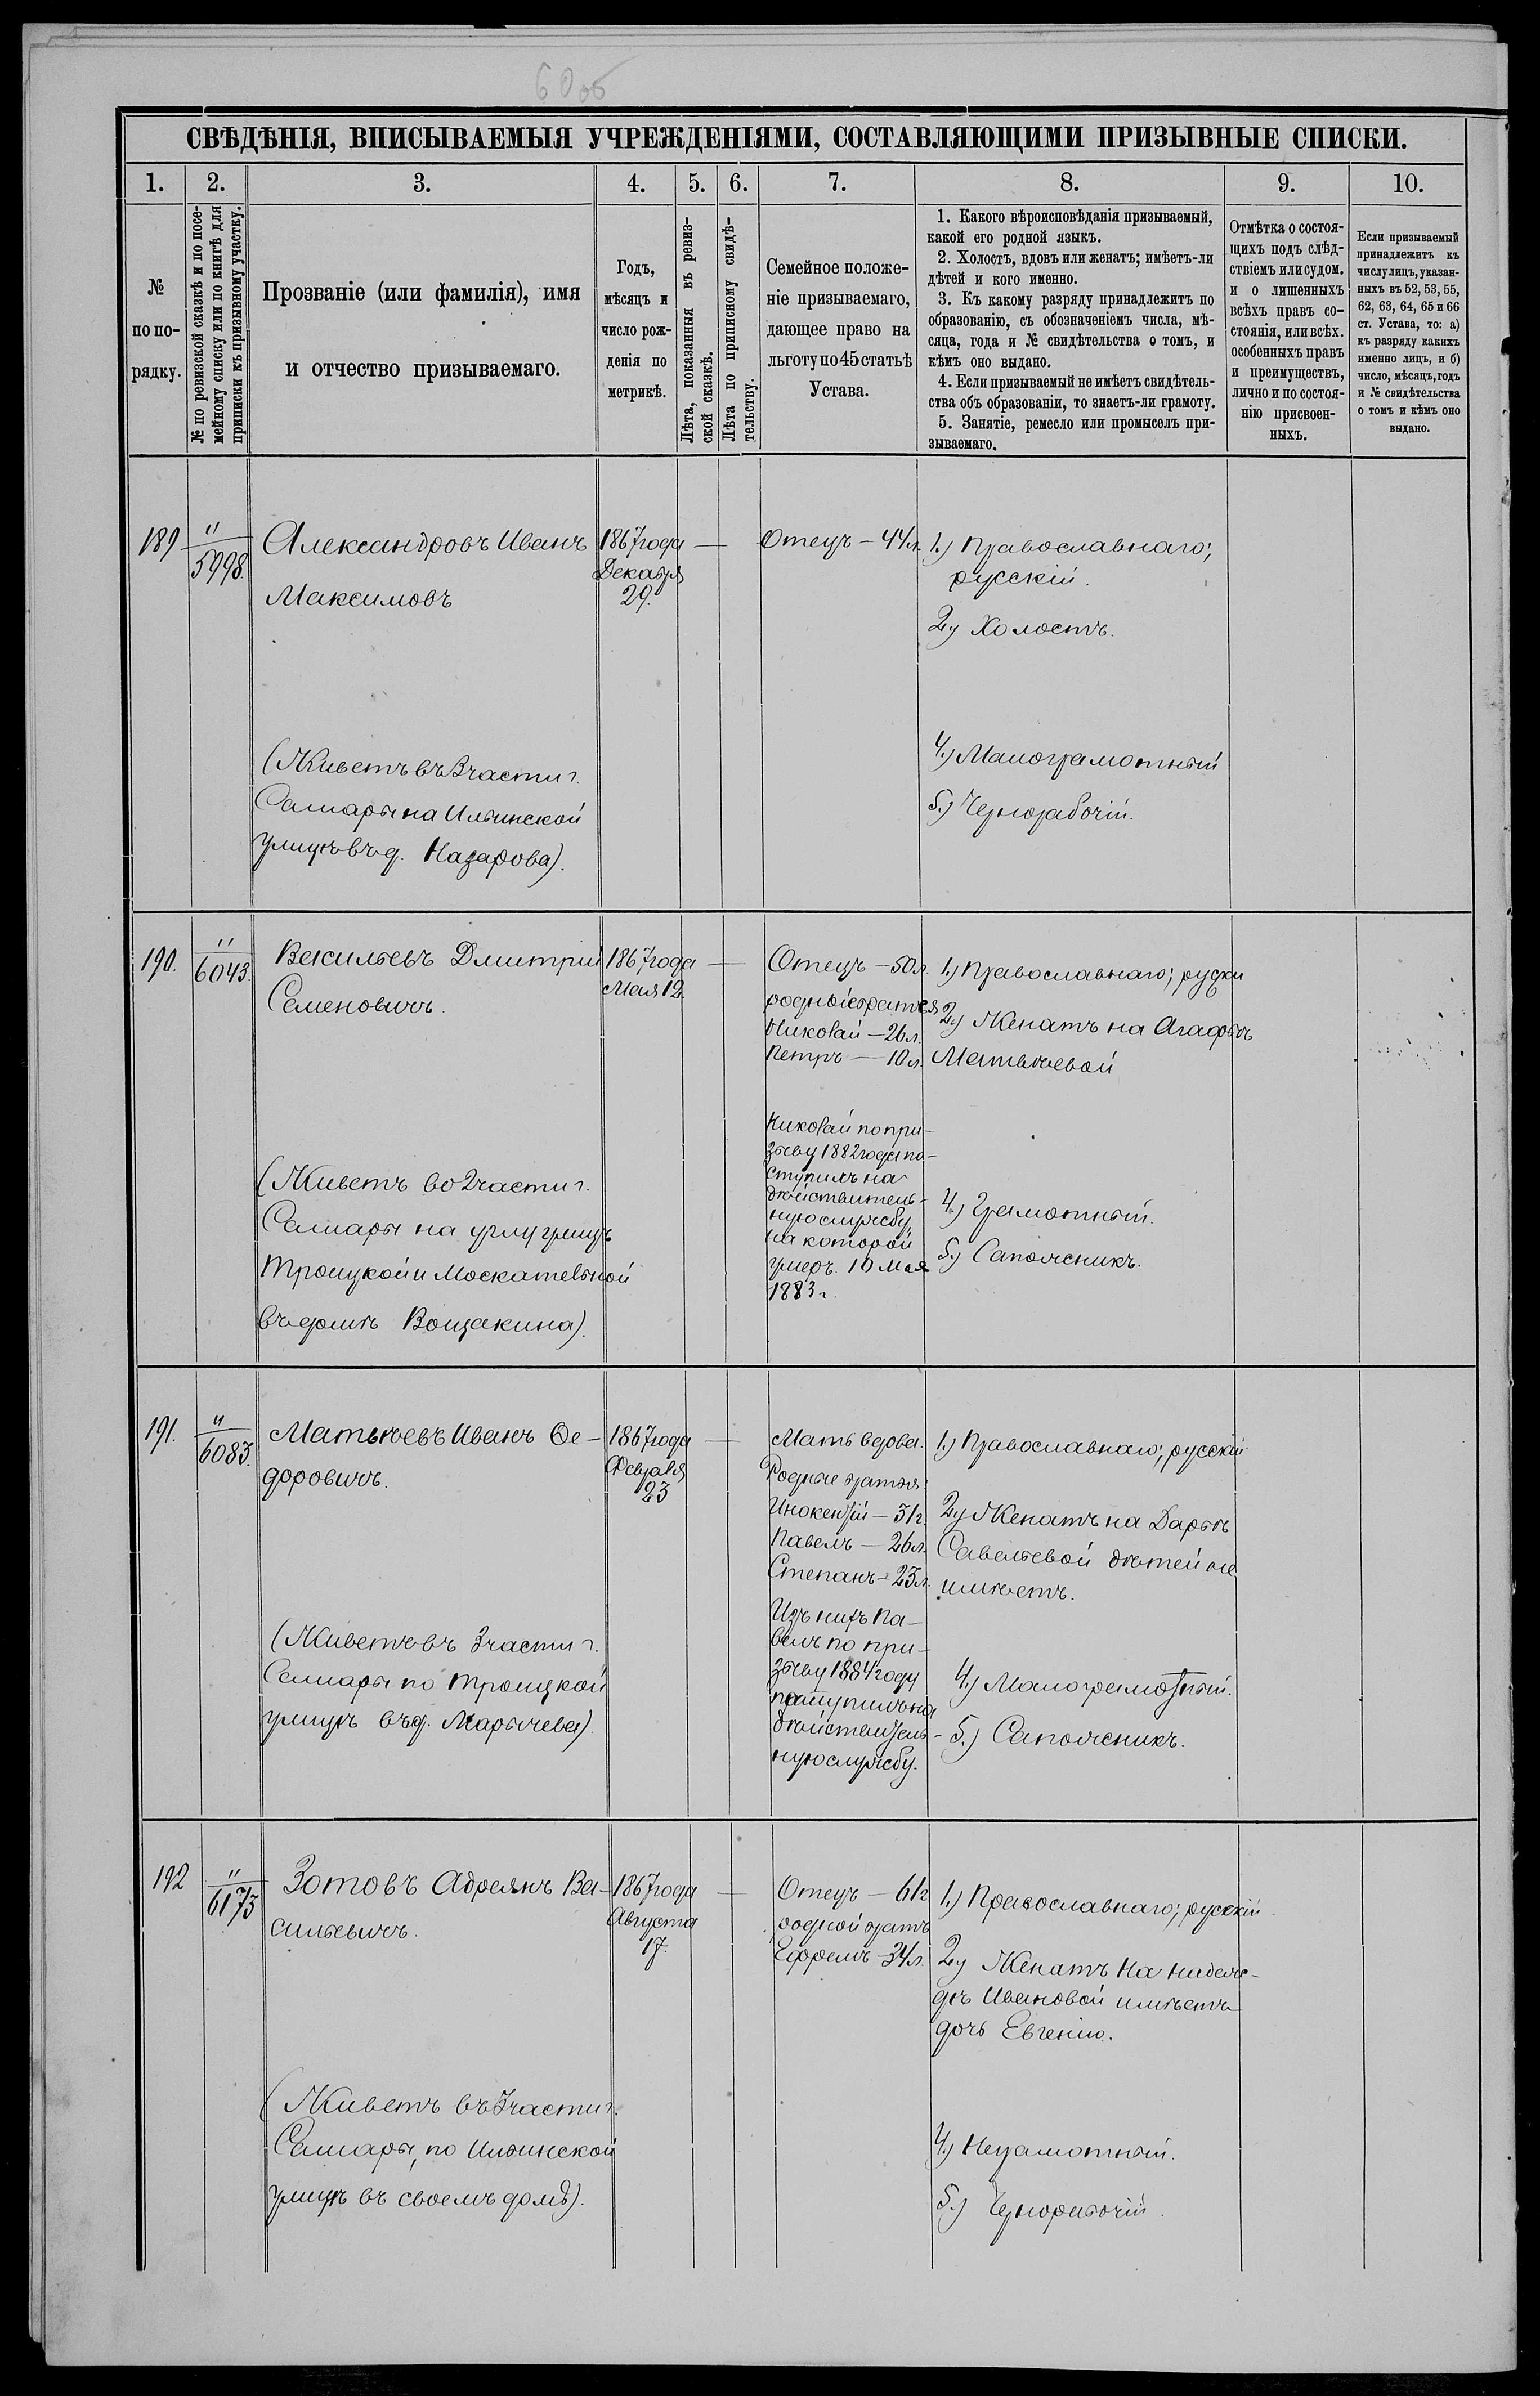 60об
СВѢДѢНІЯ, ВПИСЫВАЕМЫЯ УЧРЕЖДЕНІЯМИ, СОСТАВЛЯЮЩИМИ ПРИЗЫВНЫЕ СПИСКИ.
1.
2.
3.
4.
5.
6.
7.
8.
9.
10.
№
по по-
рядку.
№ по ревизской сказкѣ и по посе-
мейному списку или по книгѣ для
приписки къ призывному участку.
Прозваніе (или фамилія), имя
и отчество призываемаго.
Годъ,
мѣсяцъ и
число рож-
денія по
метрикѣ.
Лѣта, показанныя въ ревиз-
ской сказкѣ.
Лѣта по приписному свидѣ-
тельству.
Семейное положе-
ніе призываемаго,
дающее право на
льготу по 45 статьѣ
Устава.
1. Какого вѣроисповѣданія призываемый,
какой его родной языкъ.
2. Холостъ, вдовъ или женатъ; имѣетъ-ли
дѣтей и кого именно.
3. Къ какому разряду принадлежитъ по
образованію, съ обозначеніемъ числа, мѣ-
сяца, года и № свидѣтельства о томъ, и
кѣмъ оно выдано.
4. Если призываемый не имѣетъ свидѣтель-
ства объ образованіи, то знаетъ-ли грамоту.
5. Занятіе, ремесло или промыселъ при-
зываемаго.
Отмѣтка о состоя-
щихъ подъ слѣд-
ствіемъ или судом.
и о лишенныхъ
всѣхъ правъ со-
стоянія, или всѣх.
особенныхъ правъ
и преимуществъ,
лично и по состоя-
нію присвоен-
ныхъ.
Если призываемый
принадлежитъ къ
числу лицъ, указан-
ныхъ въ 52, 53, 55,
62, 63, 64, 65 и 66
ст. Устава, то: а)
къ разряду какихъ
именно лицъ, и б)
число, мѣсяцъ, годъ
и № свидѣтельства
о томъ и кѣмъ оно
выдано.
189
"
5998.
Александровъ Иванъ
Максимовъ
(Живетъ въ 3 части г.
Самары на Ильинской
улицѣ въ д. Назарова).
1867 года
Декабря
29.
—
Отецъ — 44 л.
1.) Православнаго;
русскій.
2.) Холостъ.
4.) Малограмотный
5.) Чернорабочій.
190.
"
6043.
Васильевъ Дмитрій
Семеновичъ.
(Живетъ во 2 части г.
Самары на углу улицъ
Троицкой и Москательной
въ домѣ Вощакина).
1867 года
Мая 12.
—
Отецъ — 50 л.
родные братья
Николай — 26 л.
Петръ — 10 л.
Николай по при-
зыву 1882 года по-
ступилъ на
дѣйствитель-
ную службу,
на которой
умеръ 10 Мая
1883 г.
1.) Православнаго; руски
2.) Женатъ на Агафьѣ
Матвѣевой
4.) Грамотный.
5.) Сапожникъ.
191.
"
6083.
Матвѣевъ Иванъ Ѳе-
доровичъ.
(Живетъ въ 3 части г.
Самары по Троицкой
улицѣ въ д. Марычева).
1867 года
Февраля
23
—
Мать вдова.
Родные братья:
Инокентій — 31 г.
Павелъ — 26 л.
Степанъ — 23 л.
Изъ нихъ Па-
велъ по при-
зыву 1884 году
поступилъ на
дѣйствитель-
ную службу.
1.) Православнаго; русскій
2.) Женатъ на Дарьѣ
Савельевой дѣтей не
имѣетъ.
4.) Малограмотный.
5.) Сапожникъ.
192
"
6173
Зотовъ Адреянъ Ва-
сильевичъ.
(Живетъ въ 3 части г.
Самары, по Ильинской
улицѣ въ своемъ домѣ).
1867 года
Августа
17.
—
Отецъ — 61 г
родной братъ
Ефремъ — 34 л.
1.) Православнаго; русскій.
2.) Женатъ на Надеж-
дѣ Ивановой имѣетъ
дочь Евгенію.
4.) Неграмотный.
5.) Чернорабочій.